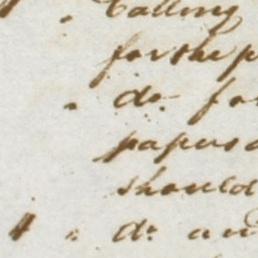 Calling
for the p
" do. fo
papers a
should
" do. an